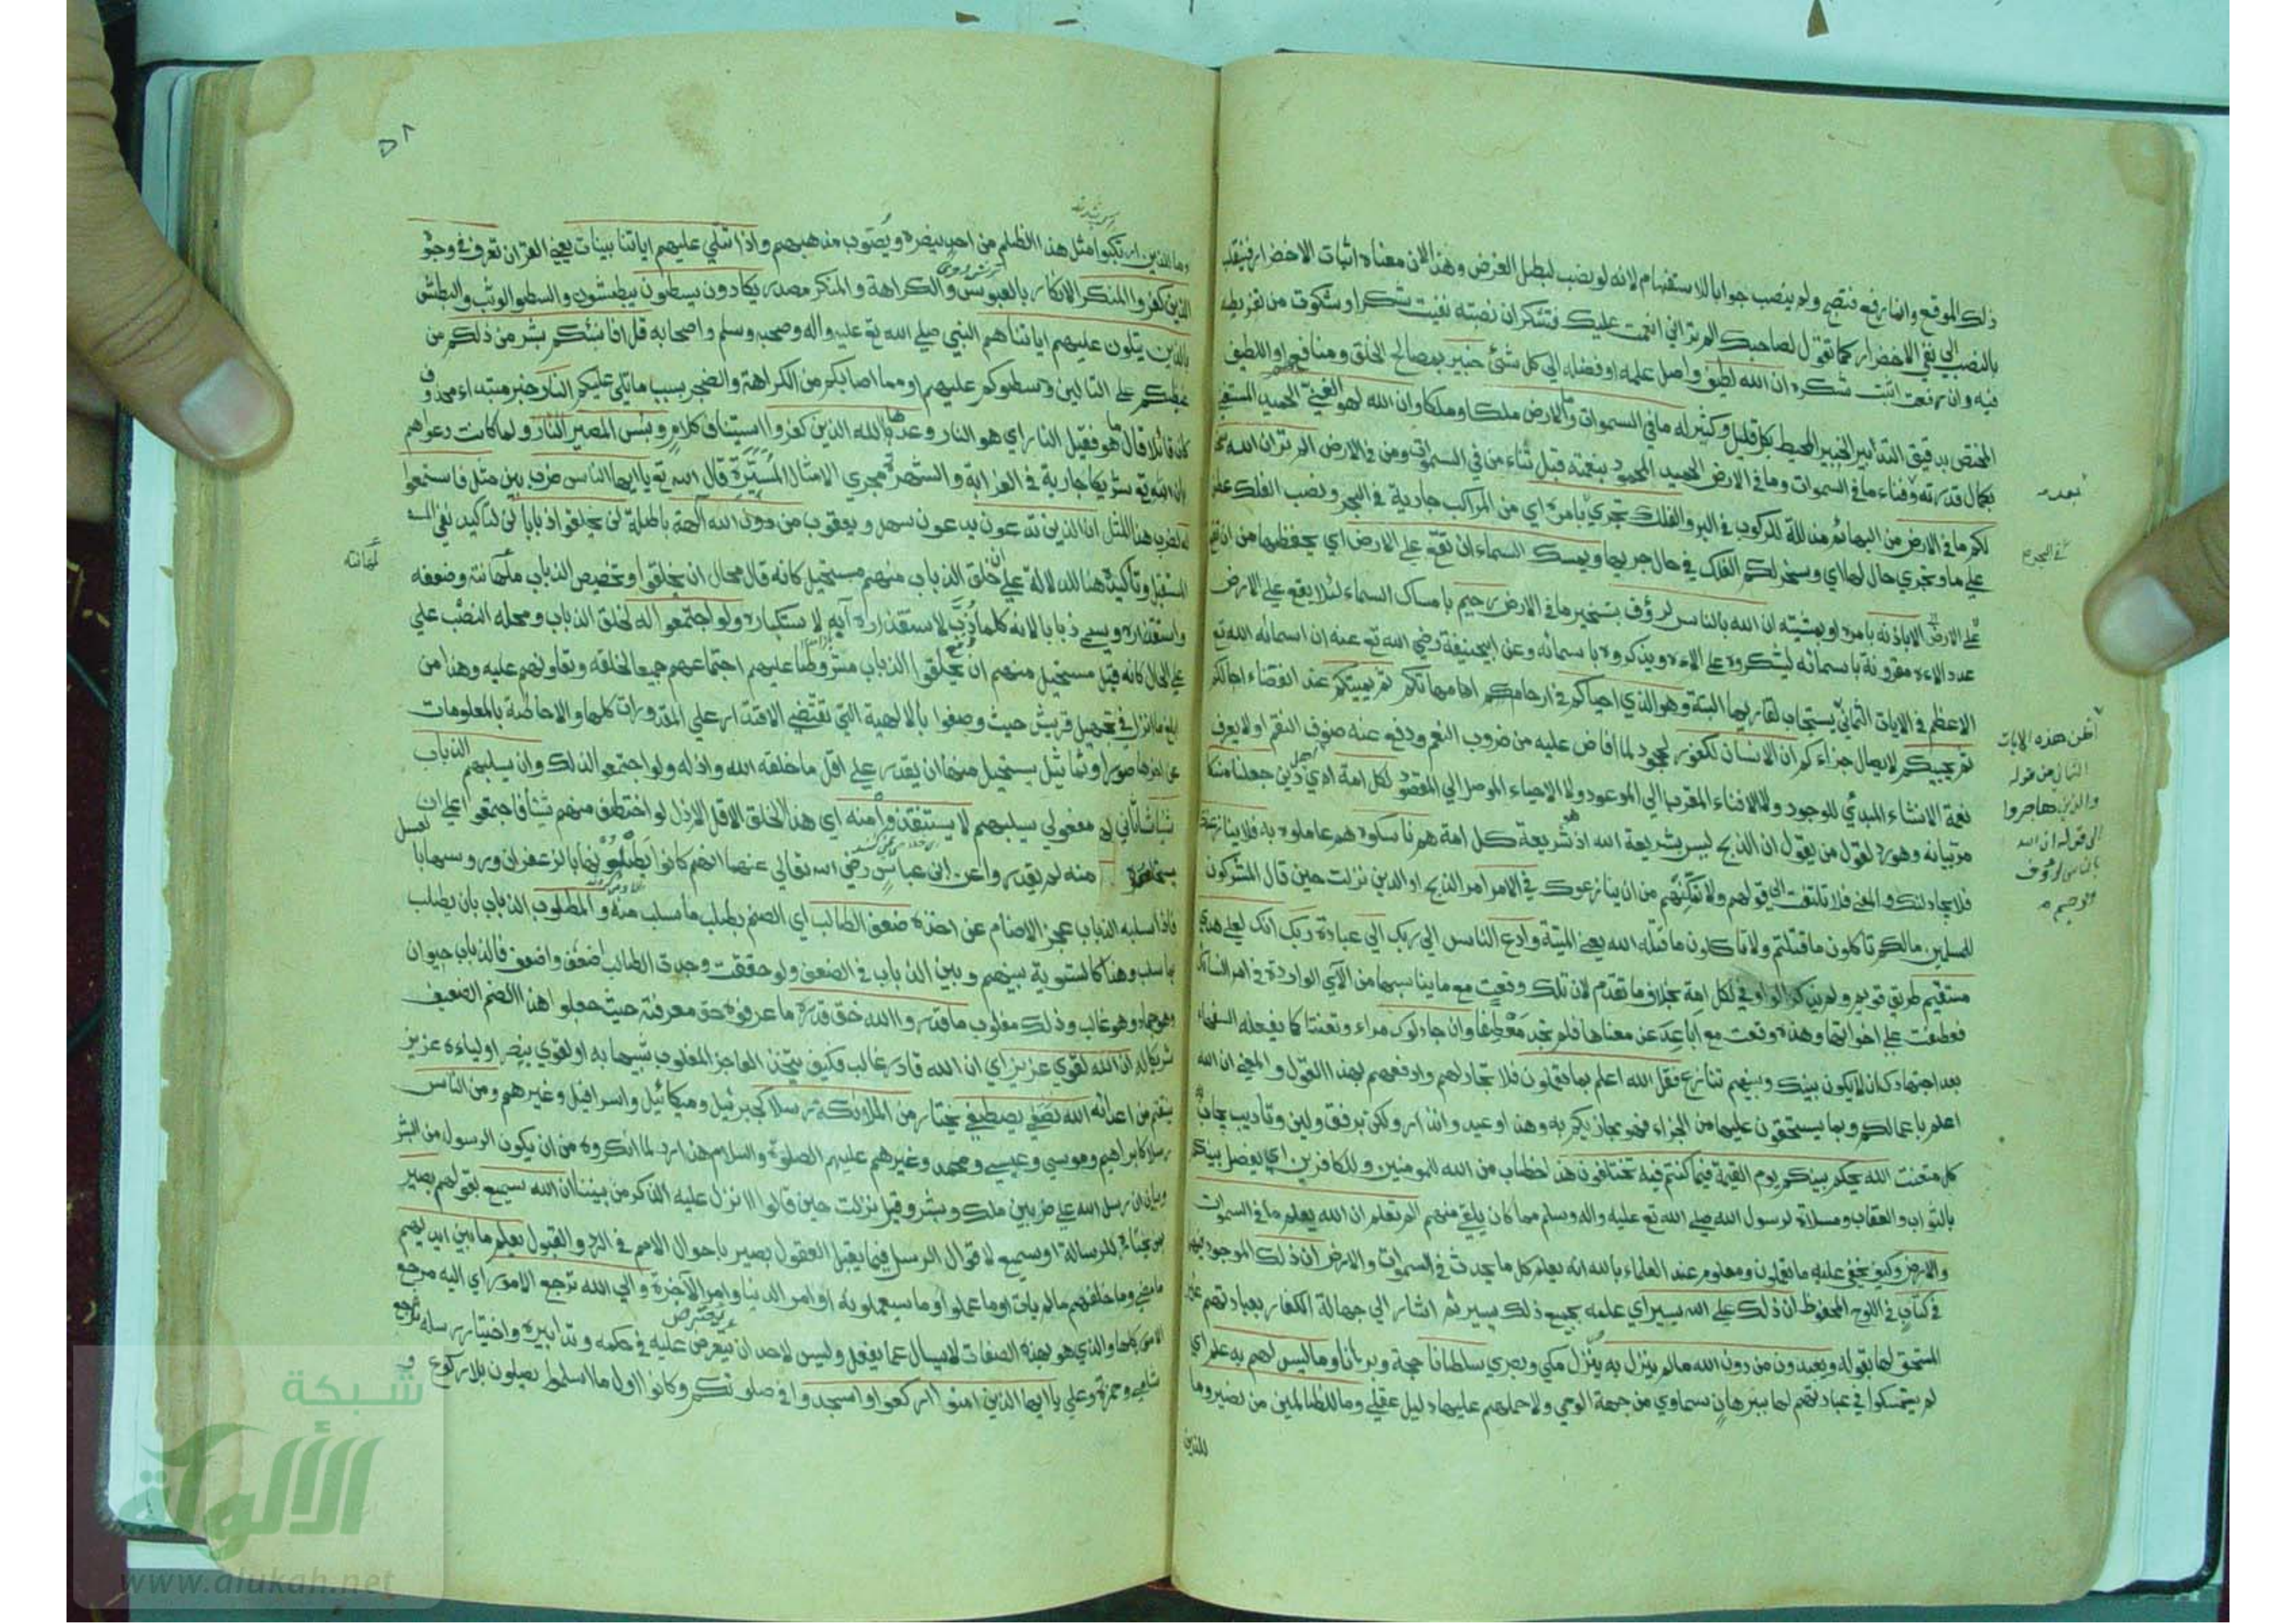 ذلك الموقع وانما رفع فتصبح ولم ينصب جوابا للاستفهام لانه لو نصب لبطل الغرض وهذا لان معناه اثبات الاخضرار فينقلب
بالنصب الى نفي الاخضرار كما تقول لصاحبك الم تر اني انعمت عليك فتشكر ان نصبته نفيت شكره وشكوت من تفريطه
فيه وان رفعت اثبت شكره ان الله لطيف واصل علمه او فضله الى كل شئ خبير بمصالح الخلق ومنافعهم او اللطيف
المختص بدقيق التدابير الخبير المحيط بكل قليل وكثير له ما في السموات وما في الارض ملكا وملكا وان الله لهو الغني الحميد المستغني
بكمال قدرته وفناء ما في السموات وما في الارض الحميد المحمود بنعمته قبل ثناء من في السموات ومن في الارض الم تر ان الله سخر
لكم ما في الارض من البهائم مذللة للركوب في البر والفلك تجري بامره اي من المراكب جارية في البحر ونصب الفلك عطفا
على ما وتجري حال لها اي وسخر لكم الفلك في حال جريها ويمسك السماء ان تقع على الارض اي يحفظها من ان تقع
على الارض الا باذنه بامره او بمشيته ان الله بالناس لرؤف بتسخير ما في الارض رحيم بامساك السماء لئلا يقع على الارض
عدد الاءه مقرونة باسمائه ليشكروه على الاءه ويذكروه باسمائه وعن ابيحنيفة رضي الله تع عنه ان اسم الله تع
الاعظم في الايات الثماني يستجاب لقاريها البتة وهو الذي احياكم في ارحام امهاتكم ثم يميتكم عند انقضاء اجالكم
ثم يحييكم لايصال جزاءكم ان الانسان لكفور لجحود لما افاض عليه من ضروب النعم ودفع عنه صنوف النقم او لا يعرف
نعمة الانشاء المبدئ للوجود ولا الافناء المقرب الى الموعود ولا الاحياء الموصل الى المقصود لكل امة اهل دين جعلنا منسكا
مر بيانه وهو رد لقول من يقول ان الذبح ليس بشريعة الله اذ هو شريعة كل امة هم ناسكوه هم عاملون به فلا ينازعنك
فلا يجادلنك والمعنى فلا تلتفت الى قولهم ولا تمكنهم من ان ينازعوك في الامر امر الذبح او الدين نزلت حين قال المشركون
للمسلمين ما لكم تاكلون ما قتلتم ولا تاكلون ما قتله الله يعني الميتة وادع الناس الى ربك الى عبادة ربك انك لعلى هدى
مستقيم طريق قويم ولم يذكر الواو في لكل امة بخلاف ما تقدم لان تلك وقعت مع ما يناسبها من الآي الواردة في امر النسائك
فعطفت على اخواتها وهذه وقعت مع اباعد عن معناها فلم تجد معطفا وان جادلوك مراء وتعنتا كما يفعله السفهاء
بعد اجتهادك ان لا يكون بينك وبينهم تنازع فقل الله اعلم بما تعملون فلا تجادلهم وادفعهم بهذا القول والمعنى ان الله
اعلم باعمالكم وبما يستحقون عليها من الجزاء فهو مجازيكم به وهذا وعيد وانذار ولكن برفق ولين وتاديب يجاب به
كل متعنت الله يحكم بينكم يوم القيمة فيما كنتم فيه تختلفون هذا خطاب من الله للمومنين والكافرين اي يفصل بينكم
بالثواب والعقاب ومسلاة لرسول الله صلى الله تع عليه واله وسلم مما كان يلقى منهم الم تعلم ان الله يعلم ما في السموات
والارض وكيف يخفى عليه ما يعملون ومعلوم عند العلماء بالله انه يعلم كل ما يحدث في السموات والارض ان ذلك الموجود فيهما
في كتاب في اللوح المحفوظ ان ذلك على الله يسير اي علمه بجميع ذلك يسير ثم اشار الى جهالة الكفار بعبادتهم غير
المستحق لها بقوله ويعبدون من دون الله ما لم ينزل به ينزل مكي وبصري سلطانا حجة وبرهانا وما ليس لهم به علم اي
لم يتمسكوا في عبادتهم لها ببرهان سماوي من جهة الوحي ولا حملهم عليها دليل عقلي وما للظالمين من نصير وما
للذين
بعده
في البحر
الثمان من قوله
والذين هاجروا
الى قوله ان الله
بالناس لرؤف
رحيم
٥٨
وما للذين ارتكبوا مثل هذا الظلم من احد ينصره ويصوب مذهبهم واذا تتلى عليهم اياتنا بينات يعني القران تعرف في وجوه
الذين كفروا المنكر الانكار بالعبوس والكراهة والمنكر مصدر يكادون يسطون يبطشون والسطو الوثب والبطش
بالذين يتلون عليهم اياتنا هم النبي صلى الله تع عليه واله وصحبه وسلم واصحابه قل افانبئكم بشر من ذلكم من
غيظكم على التالين وسطوكم عليهم او مما اصابكم من الكراهة والضجر بسبب ما تلي عليكم النار خبر مبتداء محذوف
كان قائلا قال ما هو فقيل النار اي هو النار وعدها الله الذين كفروا استيناف كلام وبئس المصير النار ولما كانت دعواهم
بان لله تع شريكا جارية في الغرابة والشهرة مجري الامثال المسيرة قال الله تع يا ايها الناس ضرب بين مثل فاستمعوا
له لضرب هذا المثل ان الذين تدعون يدعون سهل ويعقوب من دون الله آلهة باطلة لن يخلقوا ذبابا لن لتاكيد نفي
المستقبل وتاكيده هنا للدلالة على ان خلق الذباب منهم مستحيل كانه قال محال ان يخلقوا وتخصيص الذباب لمهانته وضعفه
واستقذاره ويسمى ذبابا لانه كلما ذب لاستقذاره آب لاستكباره ولو اجتمعوا له لخلق الذباب ومحله النصب على
على الحال كانه قيل مستحيل منهم ان يخلقوا الذباب مشروطا عليهم اجتماعهم جميعا لخلقه وتعاونهم عليه وهذا من
ابلغ ما انزل في تجهيل قريش حيث وصفوا بالالهية التي تقتضي الاقتدار على المقدورات كلها والاحاطة بالمعلومات
عن اخرها صورا وتماثيل يستحيل منها ان يقدر على اقل ما خلقه الله واذله ولو اجتمعوا لذلك وان يسلبهم الذباب
شيئا ثاني مفعولي يسلبهم لا يستنقذوه منه اي هذا الخلق الاقل الاذل لو اختطف منهم شيئا فاجتمعوا على ان
منه لم يقدروا عن ابن عباس رضي الله تعالى عنهما انهم كانوا يطلونها بالزعفران ورؤسها بالعسل
فاذا سلبه الذباب عجز الاصنام عن اخذه ضعف الطالب اي الصنم بطلب ما سلب منه والمطلوب الذباب بان يطلب
بما سلب وهذا كالتسوية بينهم وبين الذباب في الضعف ولو حققت وجدت الطالب اضعف واضعف فالذباب حيوان
وهو جماد وهو غالب وذلك مغلوب ما قدروا الله حق قدره ما عرفوه حق معرفته حيث جعلوا هذا الصنم الضعيف
شريكا له ان الله لقوي عزيز اي ان الله قادر غالب فكيف يتخذ العاجز المغلوب شبيها به او لقوي ينصر اولياءه عزيز
ينتقم من اعدائه الله يصطفي يختار من الملائكة رسلا كجبرئيل وميكائيل واسرافيل وغيرهم ومن الناس
رسلا كابراهيم وموسى وعيسى ومحمد وغيرهم عليهم الصلوة والسلام هذا رد لما انكروه من ان يكون الرسول من البشر
وبيان ان رسل الله على ضربين ملك وبشر وقيل نزلت حين قالوا اانزل عليه الذكر من بيننا ان الله سميع بقولهم بصير
بمن يختاره للرسالة او سميع لاقوال الرسل فيما يقبل العقول بصير باحوال الامم في الرد والقبول يعلم ما بين ايديهم
ما مضى وما خلفهم ما لم يات او ما عملوا وما سيعملونه او امر الدنيا وامر الآخرة والى الله ترجع الامور اي اليه مرجع
الامور كلها والذي هو بهذه الصفات لا يسال عما يفعل وليس لاحد ان يعترض عليه في حكمه وتدابيره واختيار رسله ترجع
شامي وحمزة وعلي يا ايها الذين امنوا اركعوا واسجدوا في صلوتكم وكانوا اول ما اسلموا يصلون بلا ركوع و
لمهانته
شبكة
الألوكة
www.alukah.net